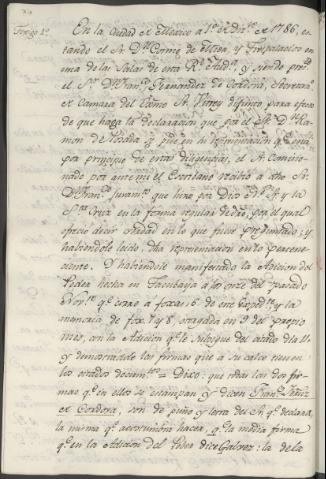 Testigo 1º.
En la Ciudad de Mexico a 1º de Dizre. de 1786, es-
tando el Sr. Dn. Cosme de Mier, y Trespalacios en
una de las Salas de esta Rl. Audª. y siendo preste.
el Sr. Dn. Franco. Fernandez de Cordova, Secretario
de Camara del Exmo. Sr. Virrey difunto para efecto
de que haga la declaracion que por el Sr. Dn. Ra-
mon de Posada se pide en la representacion que esta
por principio de estas diligencias, el Sr. Comisio-
nado por ante mi el Escribano recivió a dho Sr.
Dn. Franco. juramto. que hizo por Dios Ntro. Sr. y la
Sta. Cruz en la forma regular de dro., por el qual
ofreció decir verdad en lo que fuere preguntado; y
habiendole leido, dha representacion en lo pertene-
ciente. Y habiendole manifestado la Adicion del
Poder hecha en Tacubaya a los once del pasado
Novre. qe. corre a foxas 6 de este Expedte. y la
memoria de fox. 7 y 8. otorgada en 9 del propio
mes, con la Adicion qe. le subsigue del citado dia 11
y demostradole las firmas que a su calce tienen
los citados documtos. = Dixo: que todas las dos fir-
mas qe. en ellos se estampan y dicen Franco. Fernz.
de Cordova, son de puño y letra del Sr. qe. declara,
la misma qe. acostumbra hacer, qe. la media firma
qe. en la Adicion del Poder dice Galvez: la de la